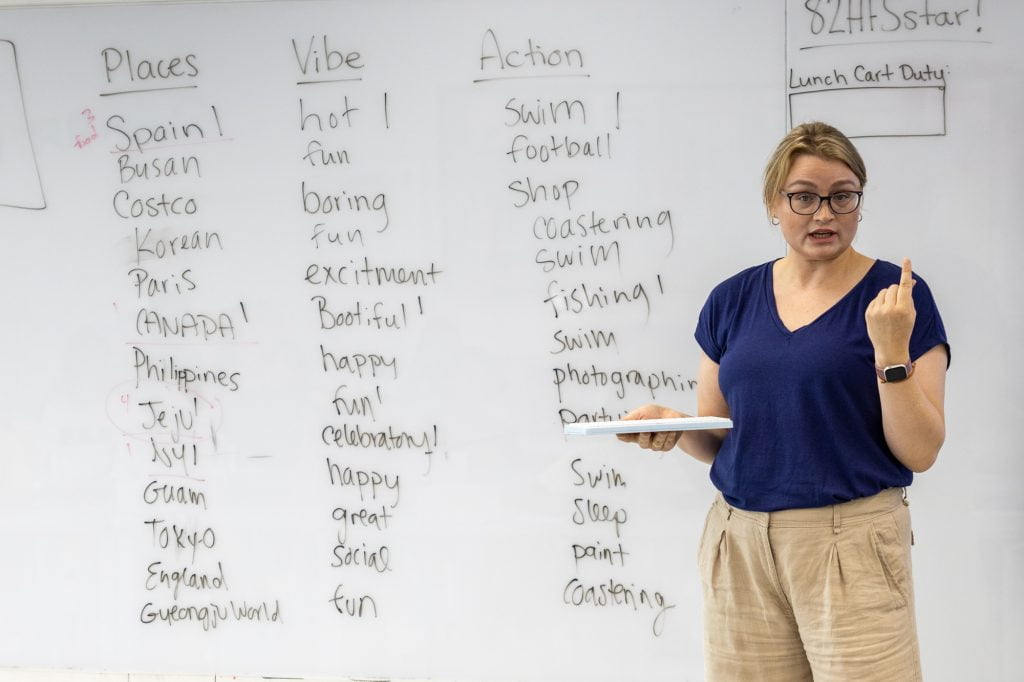 Places Vibe Action
3
food
Spain! hot! swim!
Busan fun football
Costco boring shop
Korean fun coastering
Paris excitment swim
CANADA! Bootiful! fishing!
Philippines happy swim
4 Jeju! fun! photographin
NY! celebratory!
Guam happy swim
Tokyo great sleep
England social paint
Gyeongju World fun coastering
Lunch Cart Duty: